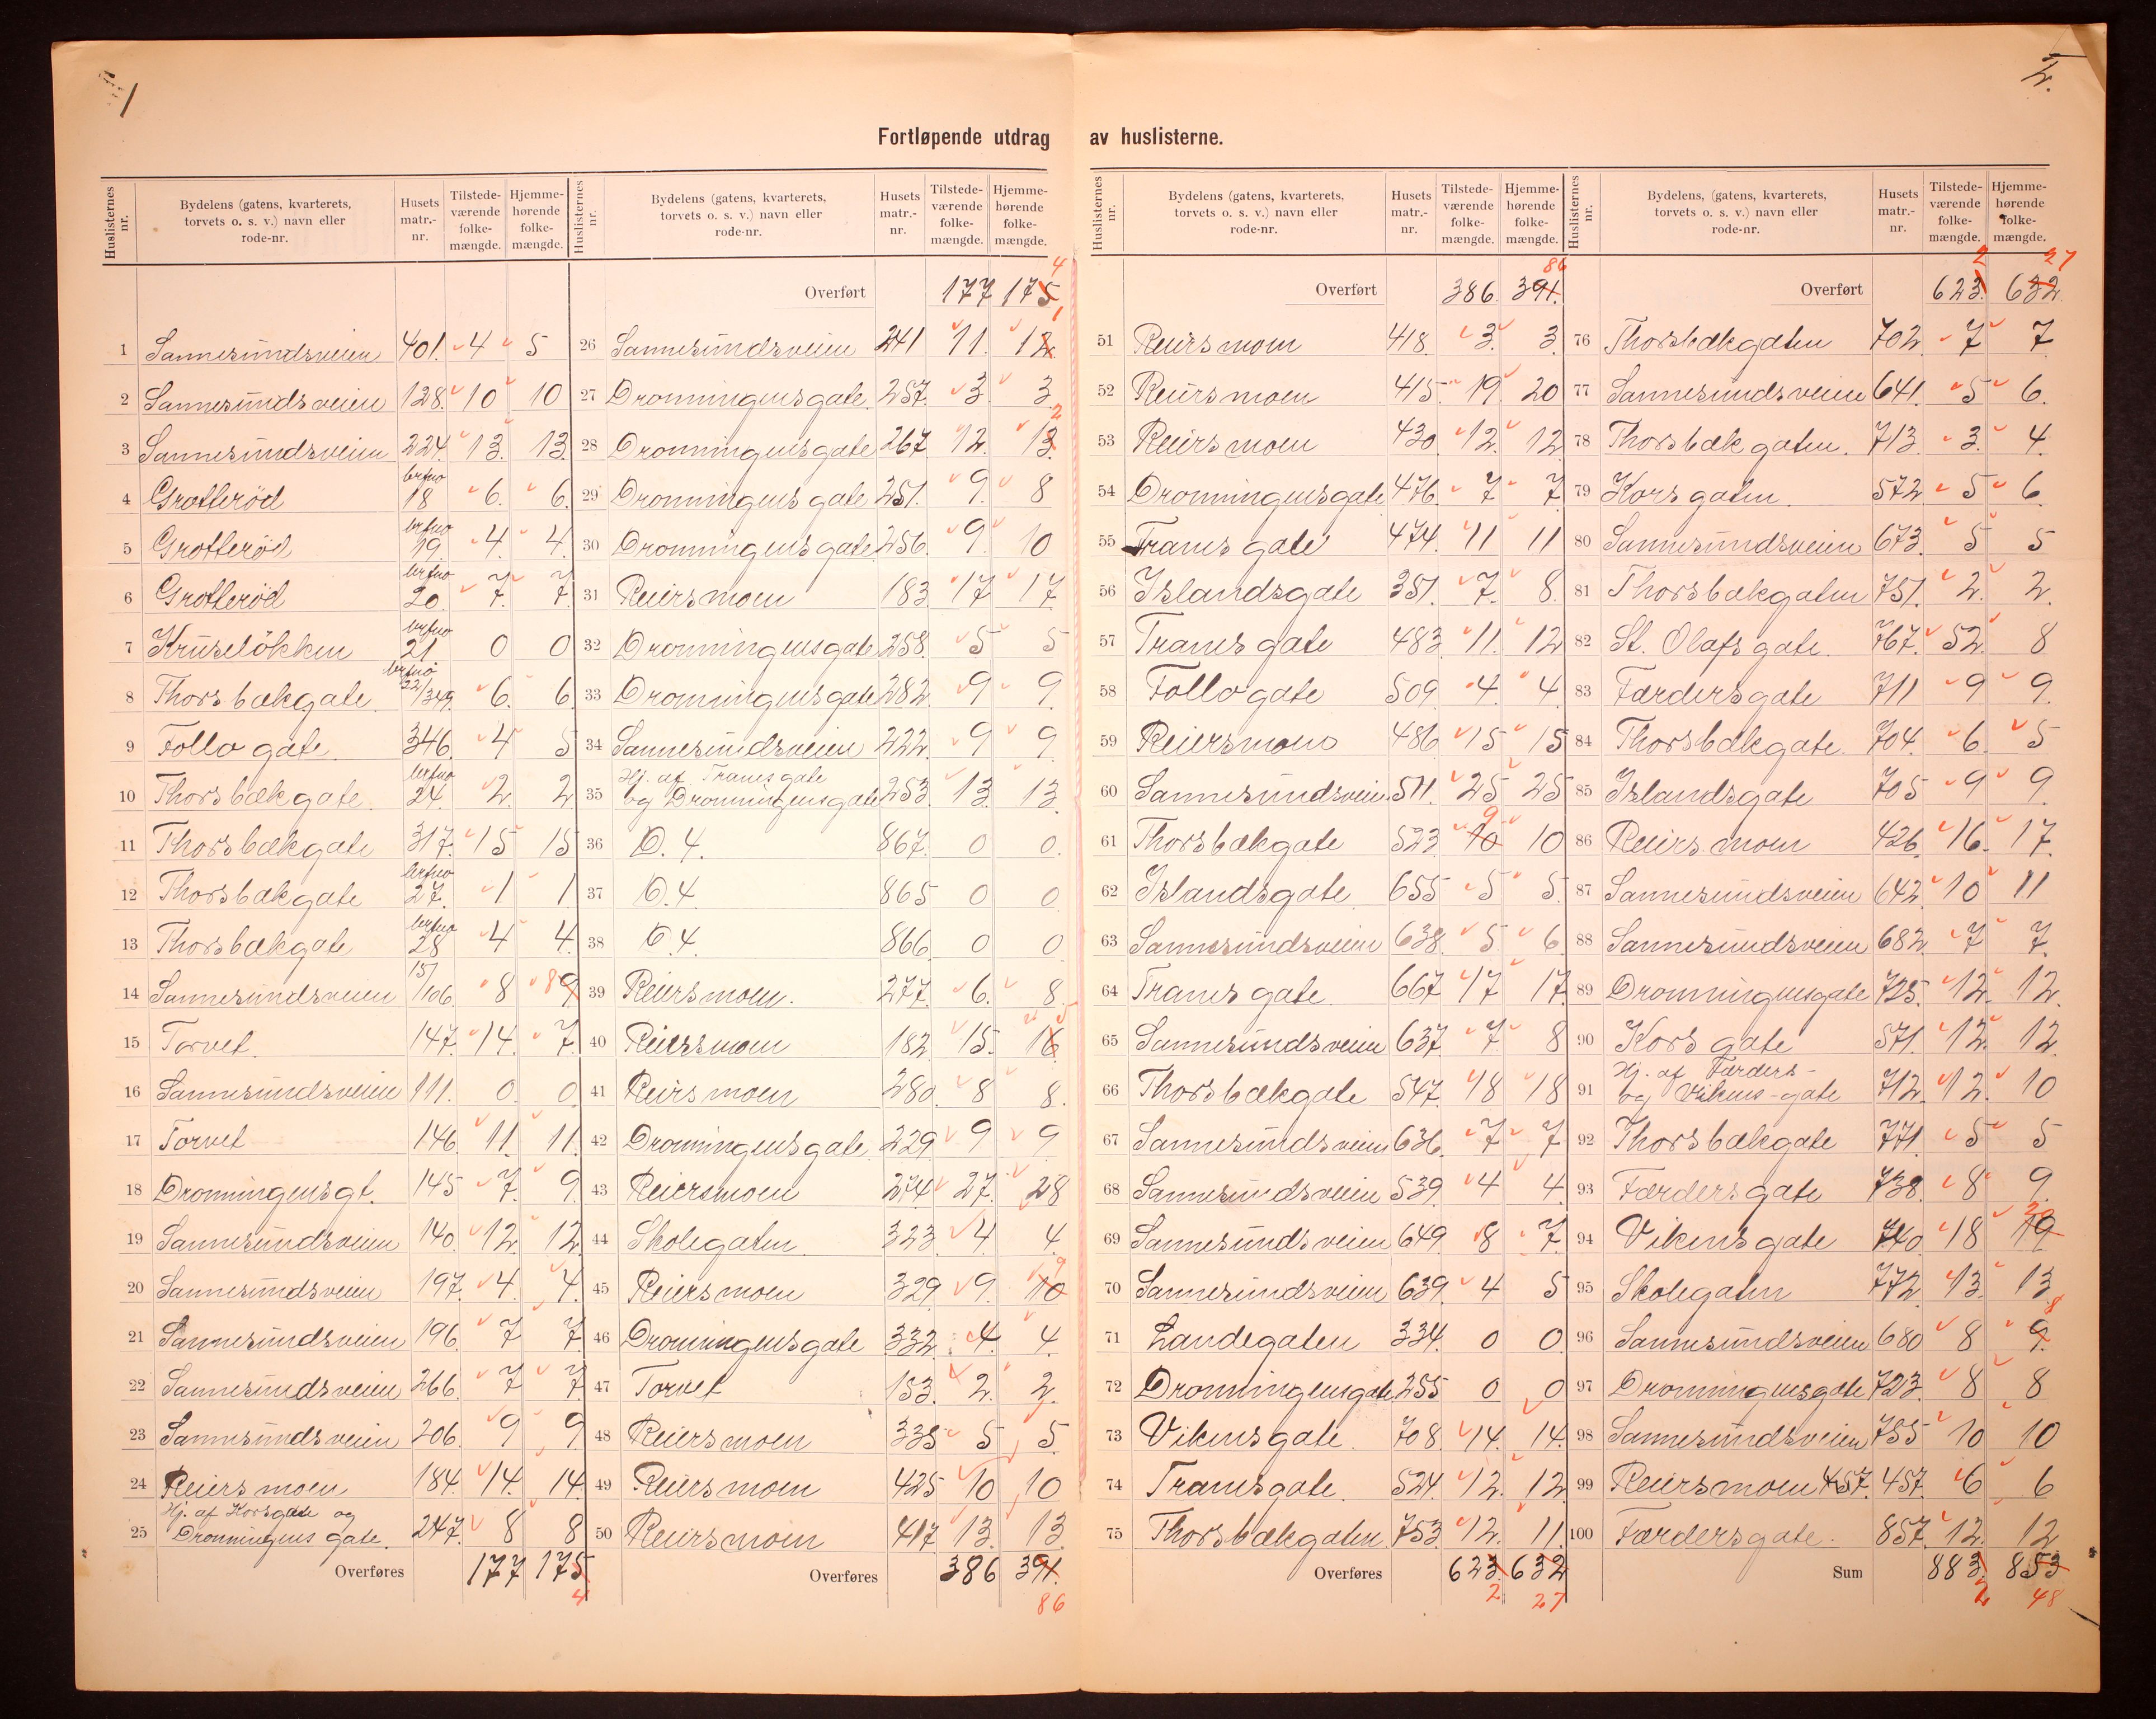 1
2.
Fortløpende utdrag av huslisterne.
Huslisternes nr. Bydelens (gatens, kvarterets, torvets o. s. v.) navn eller rode-nr. Husets matr.-nr. Tilstede-værende folke-mængde. Hjemme-hørende folke-mængde.
1 Sannesundsveien 401. 4 5
2 Sannesundsveien 128. 10 10
3 Sannesundsveien 224. 13. 13.
4 Grotterød brtno 18 6. 6.
5 Grotterød brtno 19. 4. 4.
6 Grotterød brtno 20. 7. 7.
7 Kruseløkken brtno 21 0 0
8 Thorsbækgate brtno 22/349. 6. 6
9 Follogate 346. 4 5
10 Thorsbækgate. brtno 24. 2. 2
11 Thorsbækgate 317. 15 15
12 Thorsbækgate brtno 27. 1 1
13 Thorsbækgate brtno 28 4 4.
14 Sannesundsveien 151/106. 8 8 9
15 Torvet. 147. 14. 7.
16 Sannesundsveien 111. 0. 0.
17 Torvet 146. 11. 11.
18 Dronningensgt. 145 7. 9.
19 Sannesundsveien 140. 12. 12
20 Sannesundsveien 197. 4. 4.
21 Sannesundsveien 196. 7 7.
22 Sannesundsveien 266. 7 7.
23 Sannesundsveien 206. 9 9
24 Reiersmoen 184. 14. 14.
25 Hj. af Korsgate og Dronningens gate. 247. 8 8
Overføres 177 175 4
Huslisternes nr. Bydelens (gatens, kvarterets, torvets o. s. v.) navn eller rode-nr. Husets matr.-nr. Tilstede-værende folke-mængde. Hjemme-hørende folke-mængde.
Overført 177 175 4
26 Sannesundsveien 241 11. 12 1
27 Dronningensgate. 257. 3. 3
28 Dronningensgate 267. 12. 13 2
29 Dronningens gate 251. 9. 8
30 Dronningensgate 256. 9. 10
31 Reiersmoen 183. 17 17
32 Dronningensgate 258. 5 5
33 Dronningensgate 282. 9 9.
34 Sannesundsveien 222. 9 9
35 Hj. af Tranesgate og Dronningensgate 253. 13. 13
36 O. 4. 867. 0 0.
37 O. 4. 865 0 0
38 O. 4. 866. 0 0
39 Reiersmoen. 277. 6. 8
40 Reiersmoen 182 15. 16 5
41 Reiersmoen 280. 8 8.
42 Dronningensgate 229. 9 9
43 Reiersmoen 274 27. 28
44 Skolegaten 323. 4. 4.
45 Reiersmoen 329. 9. 10 9
46 Dronningensgate 332. 4. 4.
47 Torvet 153. 2. 2.
48 Reiersmoen 335 5 5.
49 Reiersmoen 425 10 10
50 Reiersmoen 417 13. 13.
Overføres 386 391. 86
Huslisternes nr. Bydelens (gatens, kvarterets, torvets o. s. v.) navn eller rode-nr. Husets matr.-nr. Tilstede-værende folke-mængde. Hjemme-hørende folke-mængde.
Overført 386. 391. 86
51 Reiersmoen 418. 3. 3.
52 Reiersmoen 415. 19. 20
53 Reiersmoen 430. 12. 12
54 Dronningensgate 476. 7 7
55 Tranesgate 474. 11 11
56 Islandsgate 351. 7. 8.
57 Tranesgate 483. 11. 12
58 Follogate 509. 4. 4.
59 Reiersmoen 486 15 15
60 Sannesundsveien. 511. 25 25
61 Thorsbækgate 523. 10 9 10
62 Islandsgate 655 5 5.
63 Sannesundsveien 638. 5 6.
64 Tranesgate 667. 17 17
65 Sannesundsveien 637. 7 8
66 Thorsbækgate 547. 18 18
67 Sannesundsveien 636. 7 7
68 Sannesundsveien 539. 4 4.
69 Sannesundsveien 649 8 7.
70 Sannesundsveien 639. 4 5
71 Landegaten 334. 0 0
72 Dronningensgate 255 0 0
73 Vikensgate 708. 14. 14.
74 Tranesgate. 524. 12. 12
75 Thorsbækgaten 753. 12. 11.
Overføres 623. 2 632 27
Huslisternes nr. Bydelens (gatens, kvarterets, torvets o. s. v.) navn eller rode-nr. Husets matr.-nr. Tilstede-værende folke-mængde. Hjemme-hørende folke-mængde.
Overført 623. 2 632. 27
76 Thorsbækgaten 702 7 7
77 Sannesundsveien 641. 5 6.
78 Thorsbækgaten. 713. 3. 4.
79 Korsgaten 572 5 6
80 Sannesundsveien 673. 5 5
81 Thorsbækgaten 751. 2. 2.
82 St. Olafsgate. 767. 52. 8
83 Færdersgate 711 9 9.
84 Thorsbækgate. 704. 6. 5
85 Islandsgate 705 9 9.
86 Reiersmoen 426. 16. 17.
87 Sannesundsveien 642. 10 11
88 Sannesundsveien 682. 7 7.
89 Dronningensgate 725. 12. 12.
90 Korsgate 571. 12. 12
91 Hj. af Færders- og Vikens-gate 712. 12. 10
92 Thorsbækgate 771. 5 5
93 Færdersgate 738. 8 9.
94 Vikensgate 740. 18 19
95 Skolegaten 772. 13. 13
96 Sannesundsveien 680 8 9. 8
97 Dronningensgate 723. 8 8
98 Sannesundsveien 755 10 10
99 Reiersmoen 457. 457. 6 6
100 Færdersgate. 857. 12. 12
Sum 883. 2 853 48